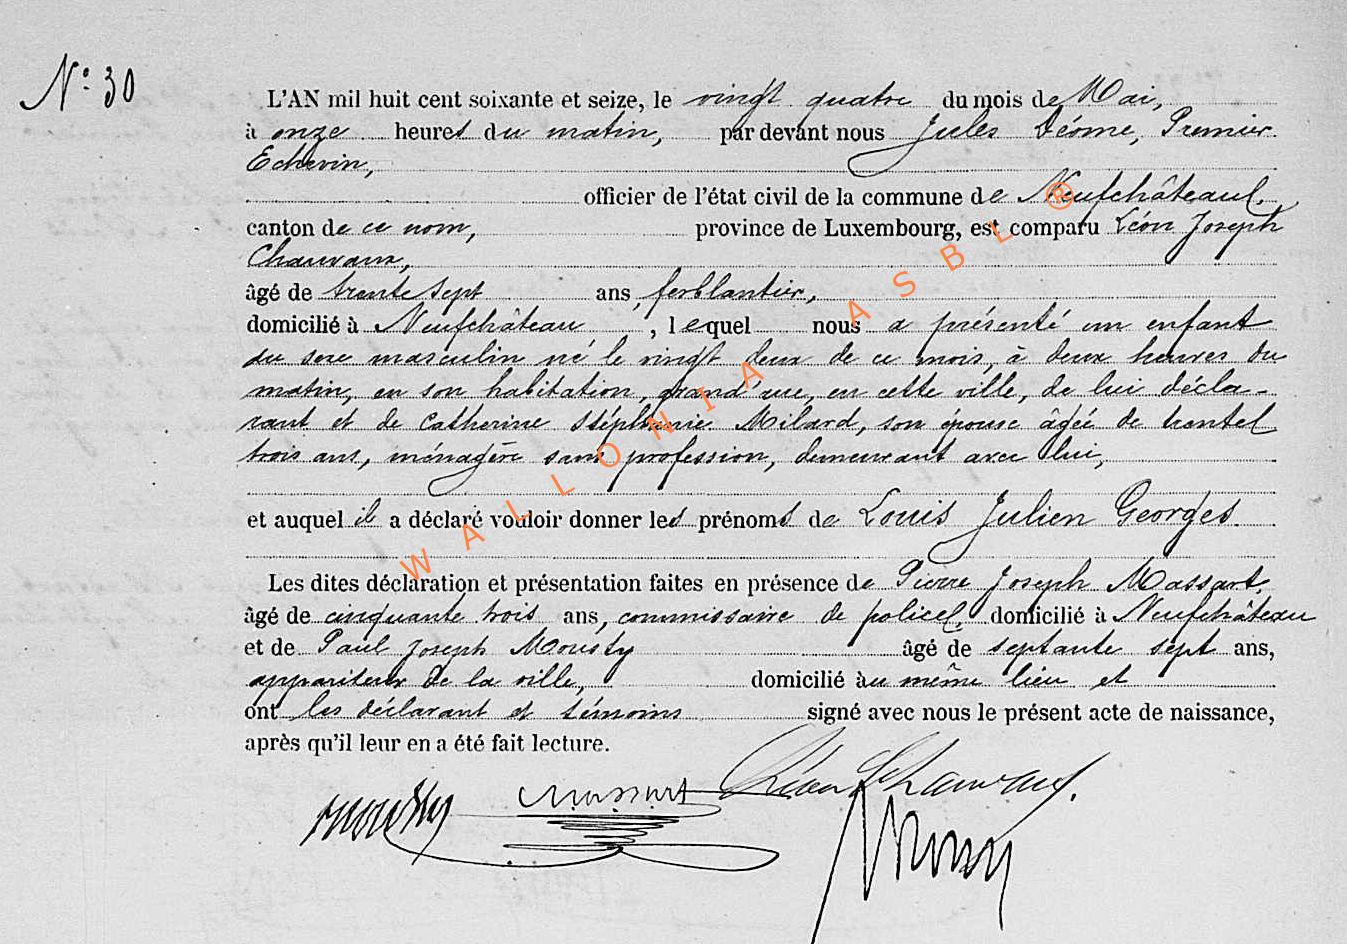 N° 30
L'AN mil huit cent soixante et seize, le vingt quatre du mois de Mai,
à onze heures du matin, par devant nous Jules Déome, Premier
Echevin,
officier de l'état civil de la commune de Neufchâteau,
canton de ce nom, province de Luxembourg, est comparu Léon Joseph
Chauvaux,
âgé de trente sept ans, ferblantier,
domicilié à Neufchâteau, lequel nous a présenté un enfant
du sexe masculin né le vingt deux de ce mois, à deux heures du
matin, en son habitation, grand'rue, en cette ville, de lui décla-
rant et de Catherine Stéphanie Milard, son épouse âgée de trente
trois ans, ménagère sans profession, demeurant avec lui,
et auquel il a déclaré vouloir donner les prénoms de Louis Julien Georges.
Les dites déclaration et présentation faites en présence de Pierre Joseph Massart,
âgé de cinquante trois ans, commissaire de police, domicilié à Neufchâteau
et de Paul Joseph Mousty âgé de septante sept ans,
appariteur de la ville, domicilié au même lieu et
ont les déclarant et témoins signé avec nous le présent acte de naissance,
après qu'il leur en a été fait lecture.
Mousty Massart Léon Chauvaux.
WALLONIA ASBL ®